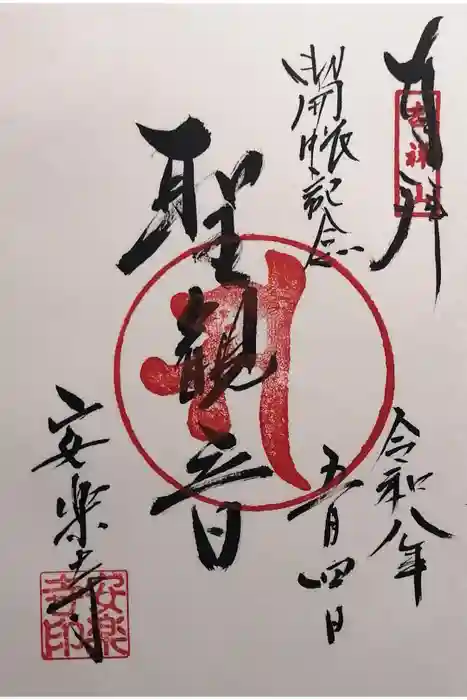 奉拝
開帳記念
令和八年
五月四日
聖観音
安楽寺
安楽
寺印